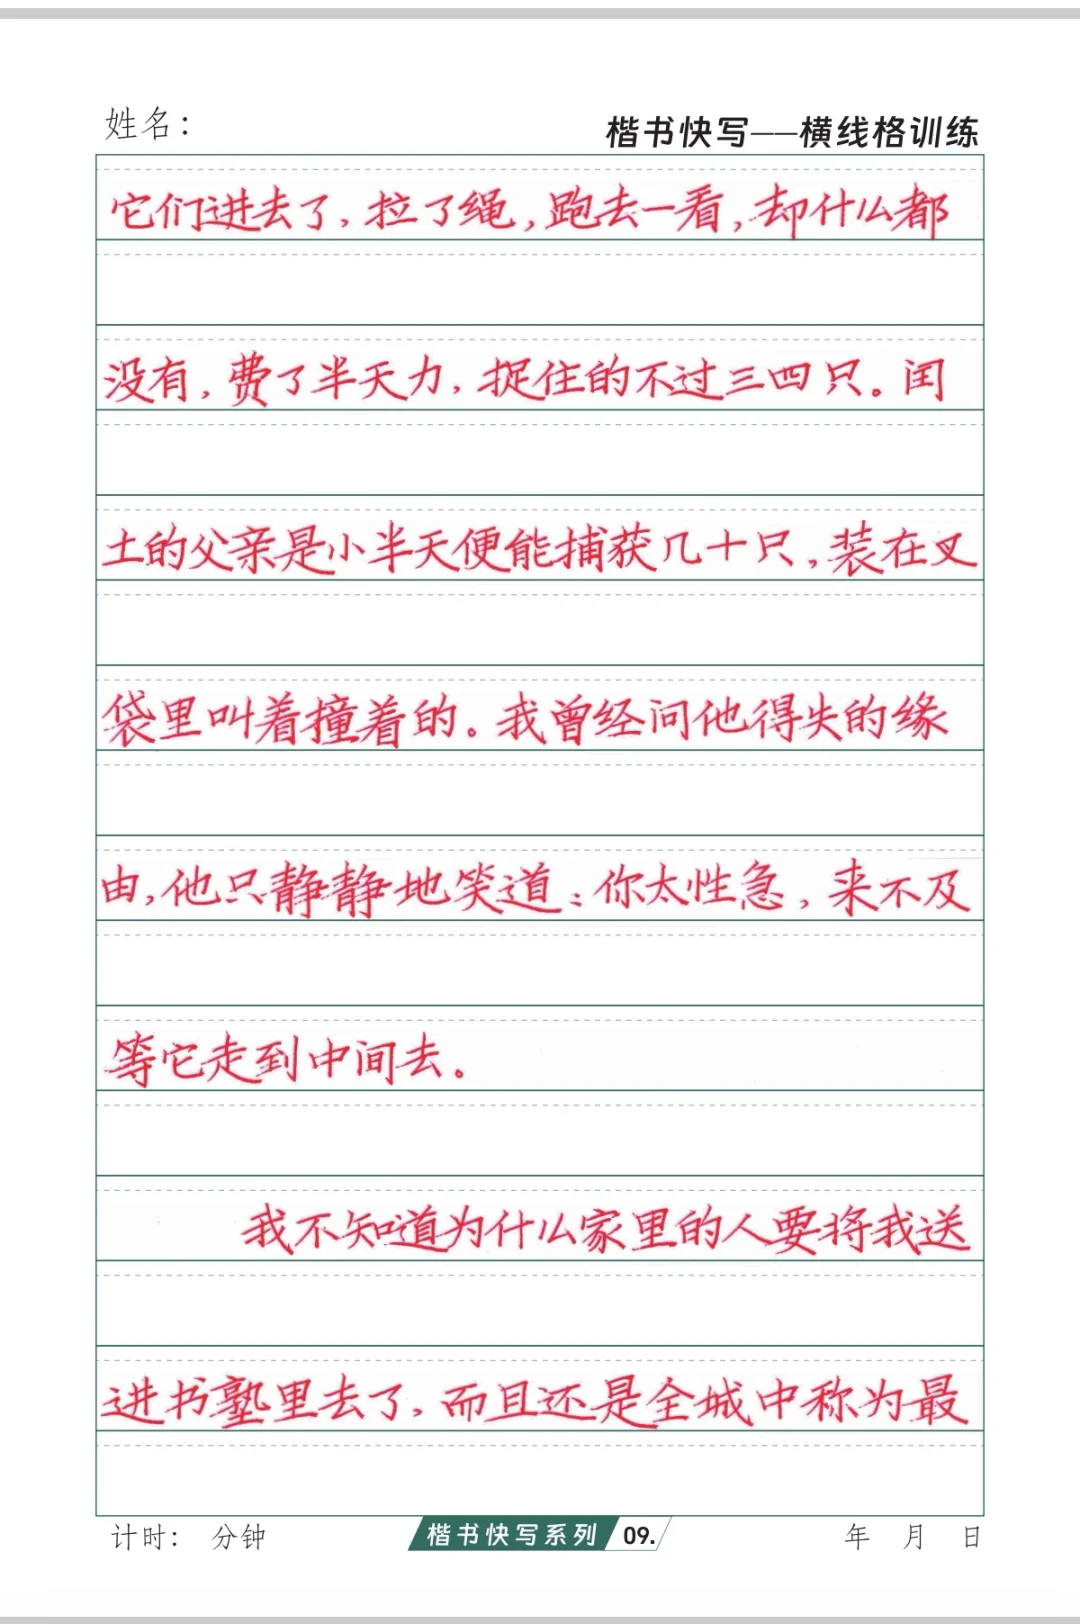 姓名：
楷书快写——横线格训练
它们进去了，拉了绳，跑去一看，却什么都
没有，费了半天力，捉住的不过三四只。闰
土的父亲是小半天便能捕获几十只，装在叉
袋里叫着撞着的。我曾经问他得失的缘
由，他只静静地笑道：你太性急，来不及
等它走到中间去。
我不知道为什么家里的人要将我送
进书塾里去了，而且还是全城中称为最
计时： 分钟 楷书快写系列 09. 年 月 日